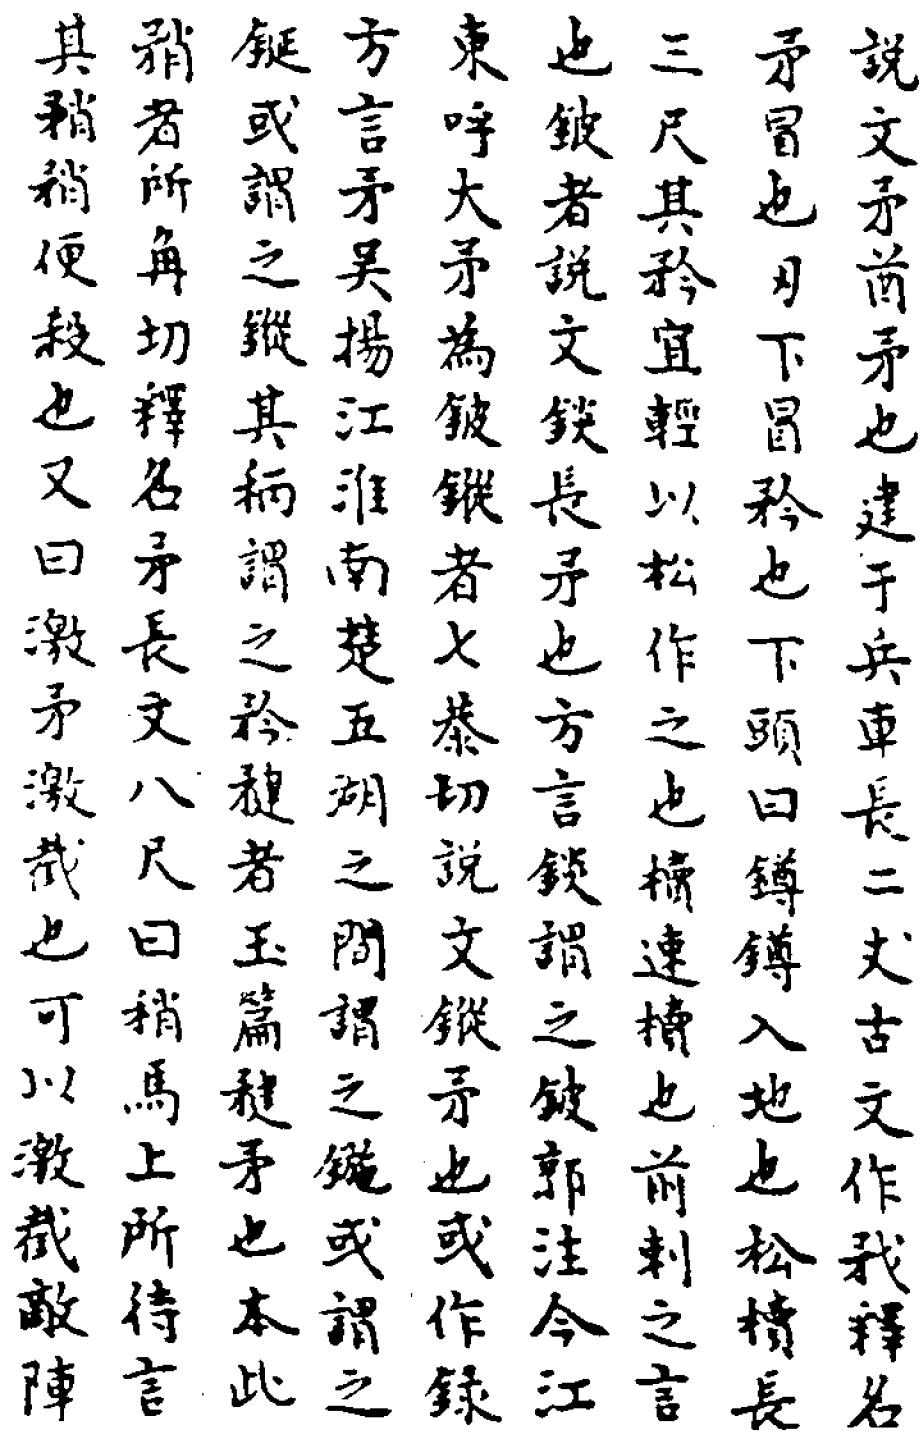 說文矛酋矛也建于兵車長二丈古文作𢦧釋名
矛冒也刃下冒矜也下頭曰鐏鐏入地也松櫝長
三尺其矜宜輕以松作之也櫝速櫝也前刺之言
也鈹者說文錟長矛也方言錟謂之鈹郭注今江
東呼大矛為鈹鏦者七恭切說文鏦矛也或作錄
方言矛吳揚江淮南楚五湖之間謂之鍦或謂之
鋋或謂之鏦其柄謂之矜𥎊者玉篇𥎊矛也本此
矟者所角切釋名矛長丈八尺曰矟馬上所待言
其矟矟便殺也又曰激矛激截也可以激截敵陣